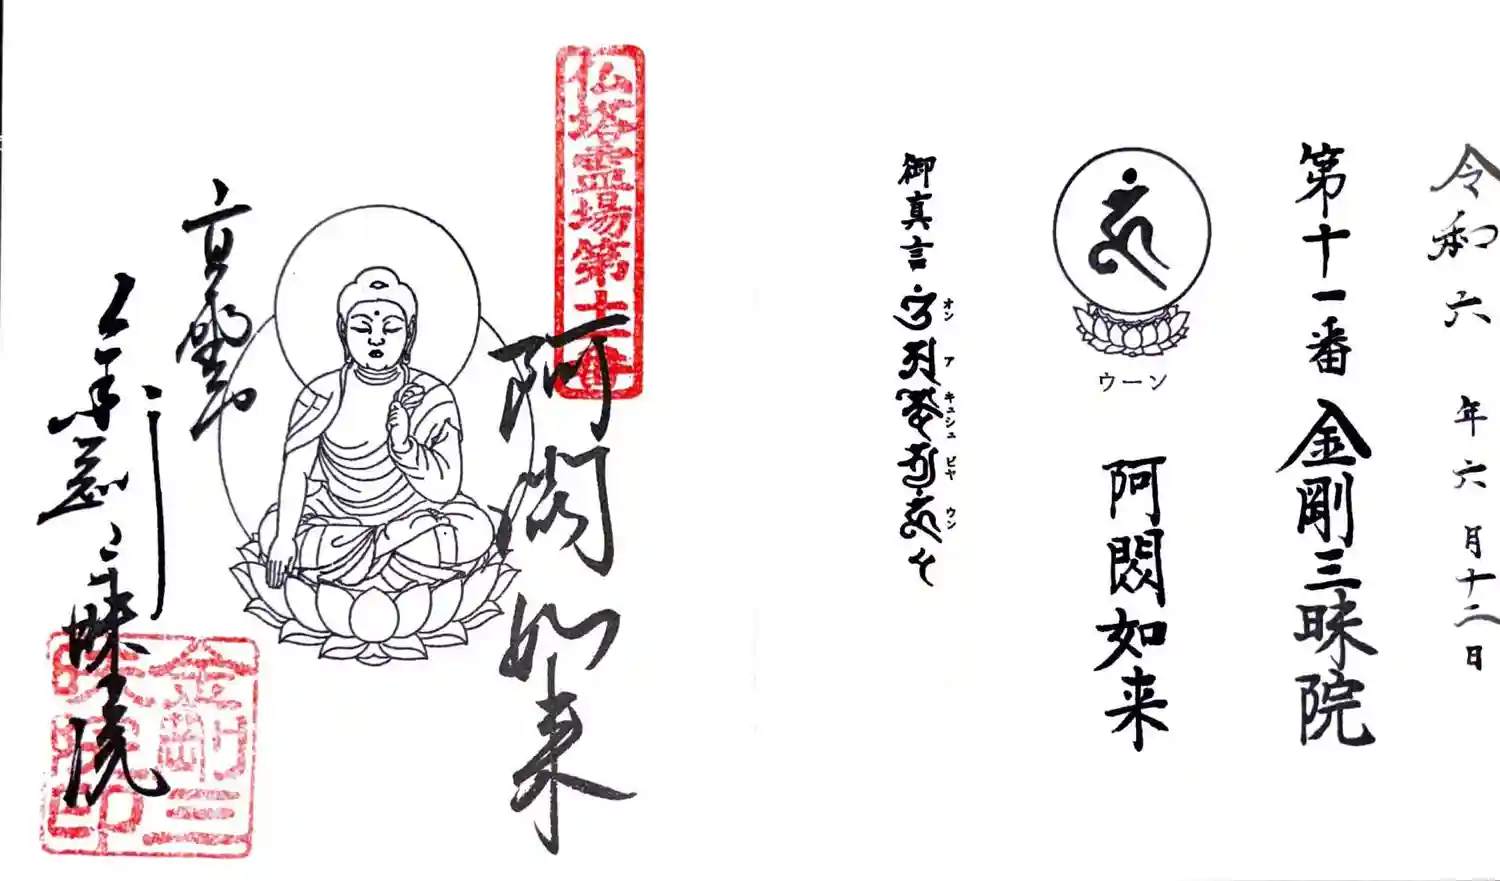 令和六年六月十二日
第十一番 金剛三昧院
ウーン
阿閦如来
御真言
オン ア キュシュ ビヤ ウン
仏塔霊場第十一番
阿閦如来
高野山
金剛三昧院
金剛三昧院印